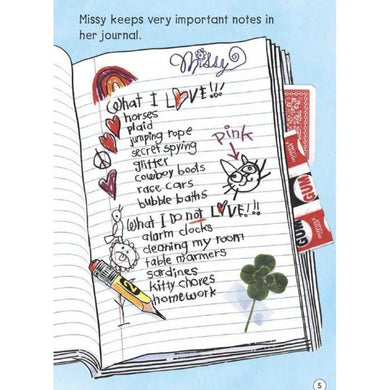 Missy keeps very important notes in
her journal.
Missy
What I LOVE!!!
horses
plaid
jumping rope
secret spying
glitter
cowboy boots
race cars
bubble baths
Pink
What I Do not LOVE!!!
alarm clocks
cleaning my room
table manners
sardines
kitty chores
homework
GUM
GUM
2
5